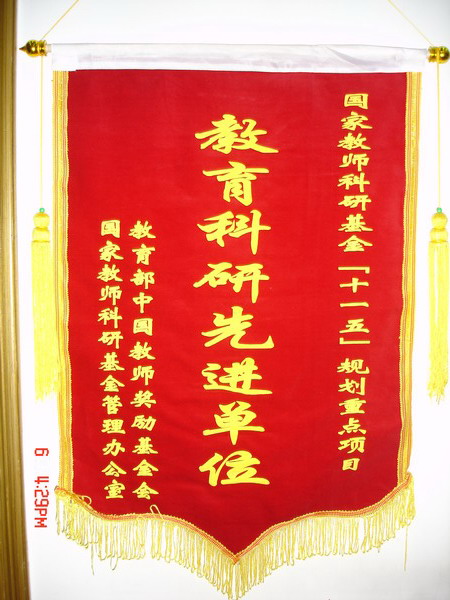 国家教师科研基金「十一五」规划重点项目
教育科研先进单位
教育部中国教师奖励基金会
国家教师科研基金管理办公室
6 4:29PM